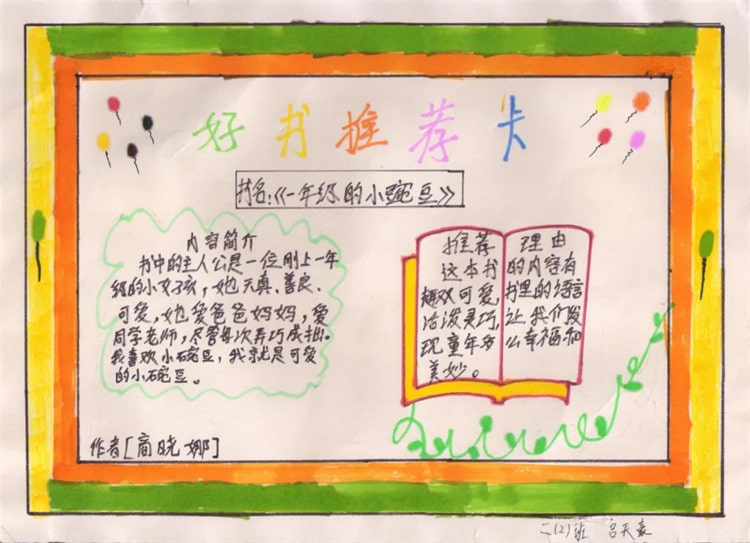 好书推荐卡
书名:《一年级的小豌豆》
内容简介
书中的主人公是一位刚上一年
级的小女孩,她天真、善良、
可爱,她爱爸爸妈妈,爱
同学老师,尽管每次弄巧成拙。
我喜欢小碗豆,我就是可爱
的小碗豆。
推荐理由
这本书的内容有
趣欢可爱,书里的语言
活泼灵巧,让我们发
现童年多么幸福和
美妙。
作者[商晓娜]
二(2)班